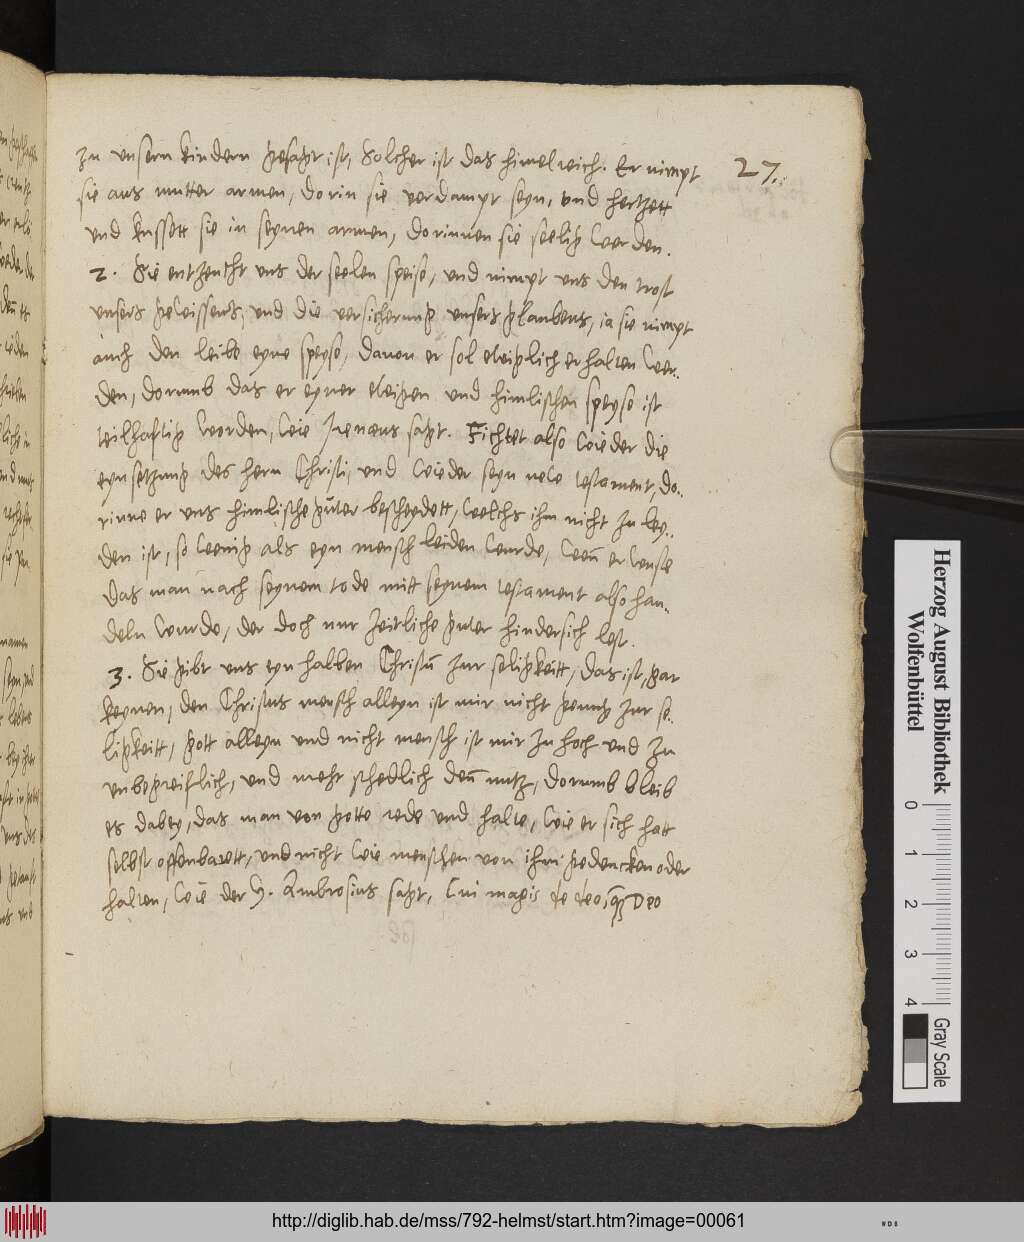 27.
zu unsern kindern gesagt ist, Solcher ist das himelreich. Er nimpt
sie aus mutter armen, dorin sie verdampt seyn, und hertzett
und kussett sie in seynen armen, dorinnen sie seelig werden.
2. Sie entzeucht uns der seelen speise, und nimpt uns den trost
unsers gewissens, und die versicherung unsers glaubens, ia sie nimpt
auch den leibe eyne speyse, davon er sol ewiglich erhalten wer-
den, dorumb das er eyner ewigen und himlischen speyse ist
teilhaftig worden, wie Irenæus sagt. Fichtet also wieder die
eynsetzung des hern Christi, und wieder seyn new testament, do-
rinne er uns himlische guter bescheydett, welchs ihm nicht zu ley-
den ist, so wenig als eyn mensch leiden wurde, wen̄ er wuste
das man nach seynem tode mitt seynem testament also han-
deln wurde, der doch nur zeitliche guter hindersich lest.
3. Sie gibt uns eyn halben Christū zur seligkeitt, das ist, gar
keynen, den Christus mensch alleyn ist mir nicht genug zur se-
ligkeitt, gott alleyn und nicht mensch ist mir zu hoch und zu
unbegreiflich, und mehr schedlich den̄ nutz, dorumb bleib
es dabey, das man von gotte rede und halte, wie er sich hatt
selbst offenbarett, und nicht wie menschen von ihm gedencken oder
halten, wie der H. Ambrosius sagt, Cui magis de deo, quam Deo
Herzog August Bibliothek
Wolfenbüttel
0 1 2 3 4
Gray Scale
http://diglib.hab.de/mss/792-helmst/start.htm?image=00061